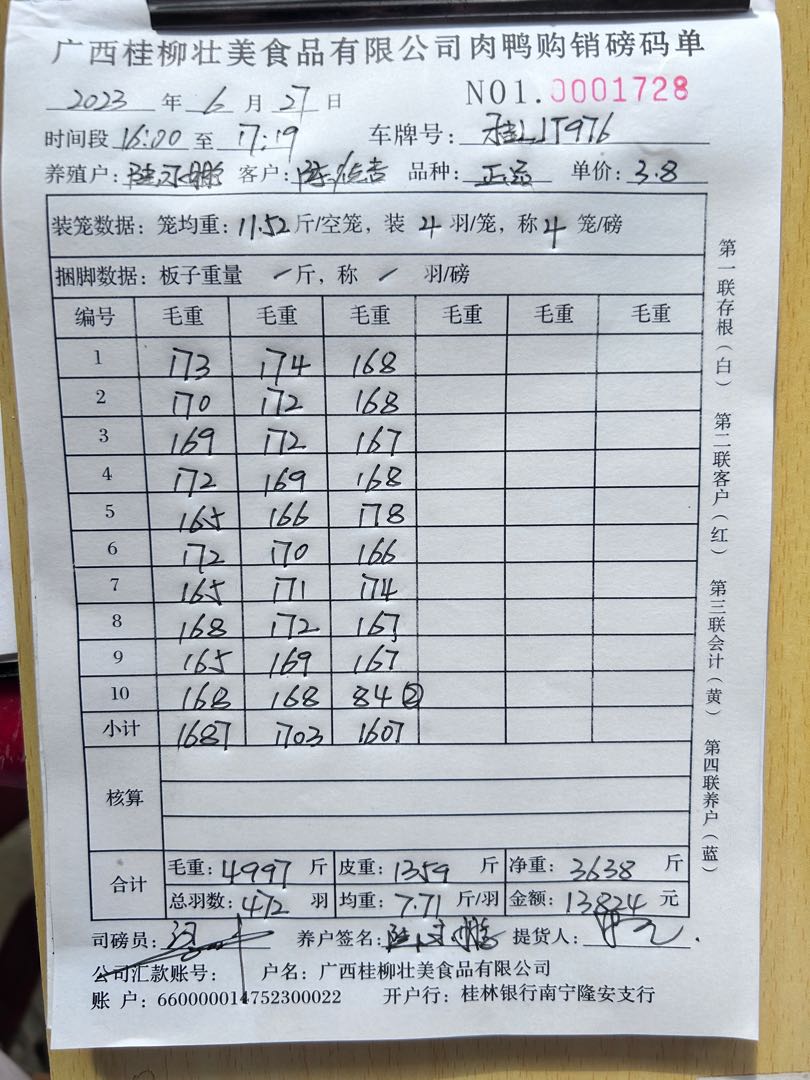 广西桂柳壮美食品有限公司肉鸭购销磅码单
2023 年 6 月 27 日 NO1.0001728
时间段 16:00 至 17:19 车牌号: 桂LJT976
养殖户: 客户: 品种: 正品 单价: 3.8
装笼数据: 笼均重: 11.52 斤/空笼, 装 4 羽/笼, 称 4 笼/磅
捆脚数据: 板子重量 / 斤, 称 / 羽/磅
编号 毛重 毛重 毛重 毛重 毛重 毛重
1 173 174 168
2 170 172 168
3 169 172 167
4 172 169 168
5 165 166 178
6 172 170 166
7 165 171 174
8 168 172 167
9 165 169 167
10 168 168 84 ②
小计 1687 1703 1607
核算
合计 毛重: 4997 斤 皮重: 1359 斤 净重: 3638 斤
总羽数: 472 羽 均重: 7.71 斤/羽 金额: 13824 元
司磅员: 养户签名: 提货人:
公司汇款账号: 户名: 广西桂柳壮美食品有限公司
账 户: 660000014752300022 开户行: 桂林银行南宁隆安支行
第一联存根(白) 第二联客户(红) 第三联会计(黄) 第四联养户(蓝)